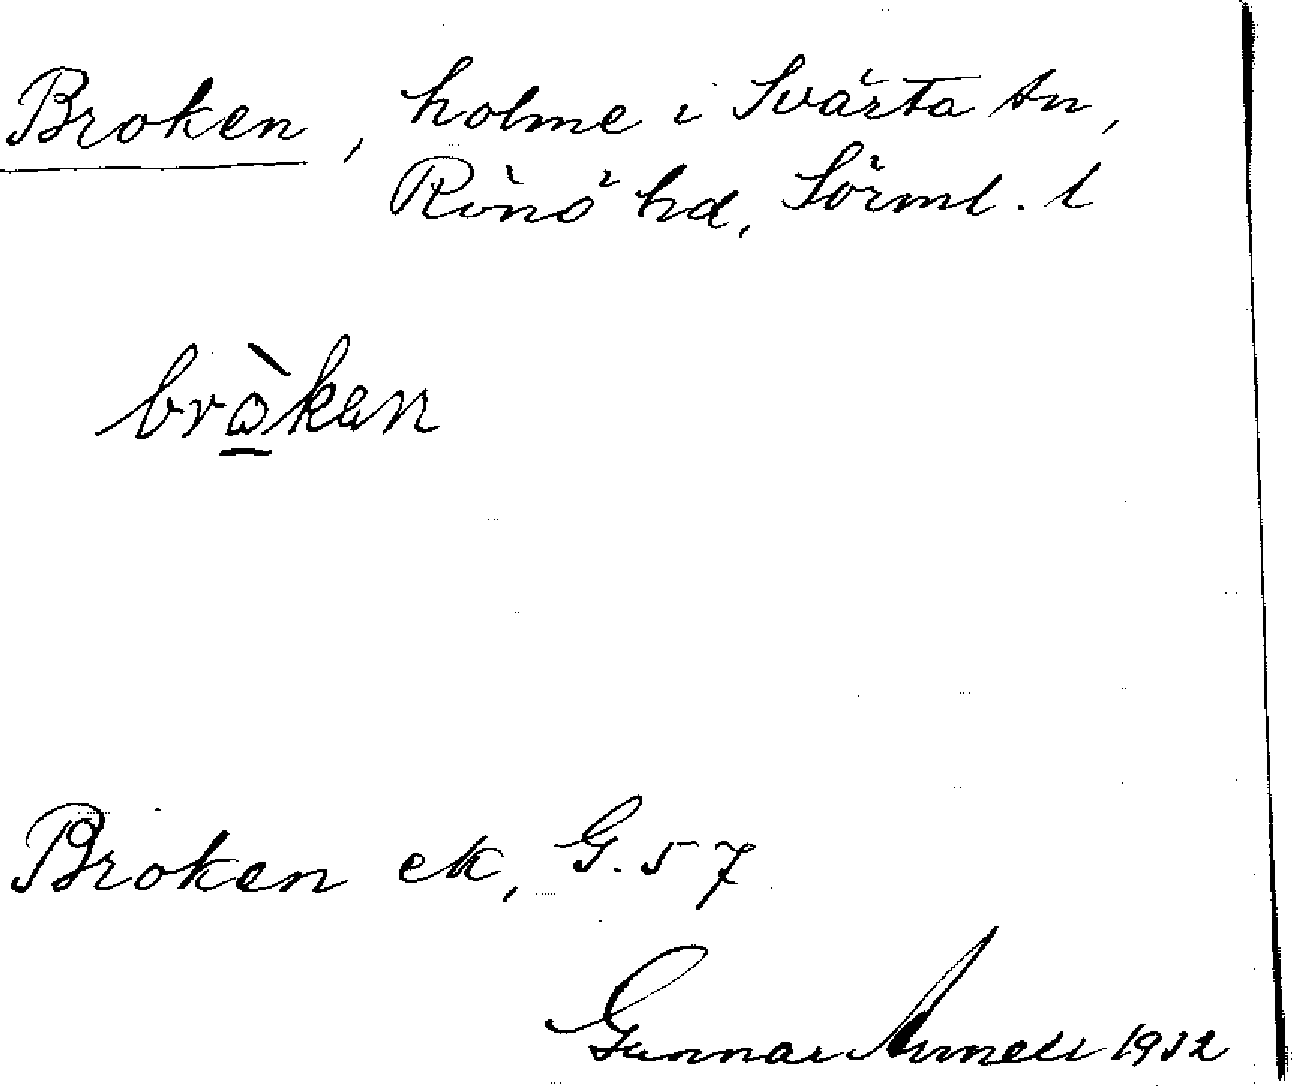 Broken, holme i Svärta sn,
Rönö hd, Sörml. l
bròken
Broken ek, G. 57
Gunnar 1932